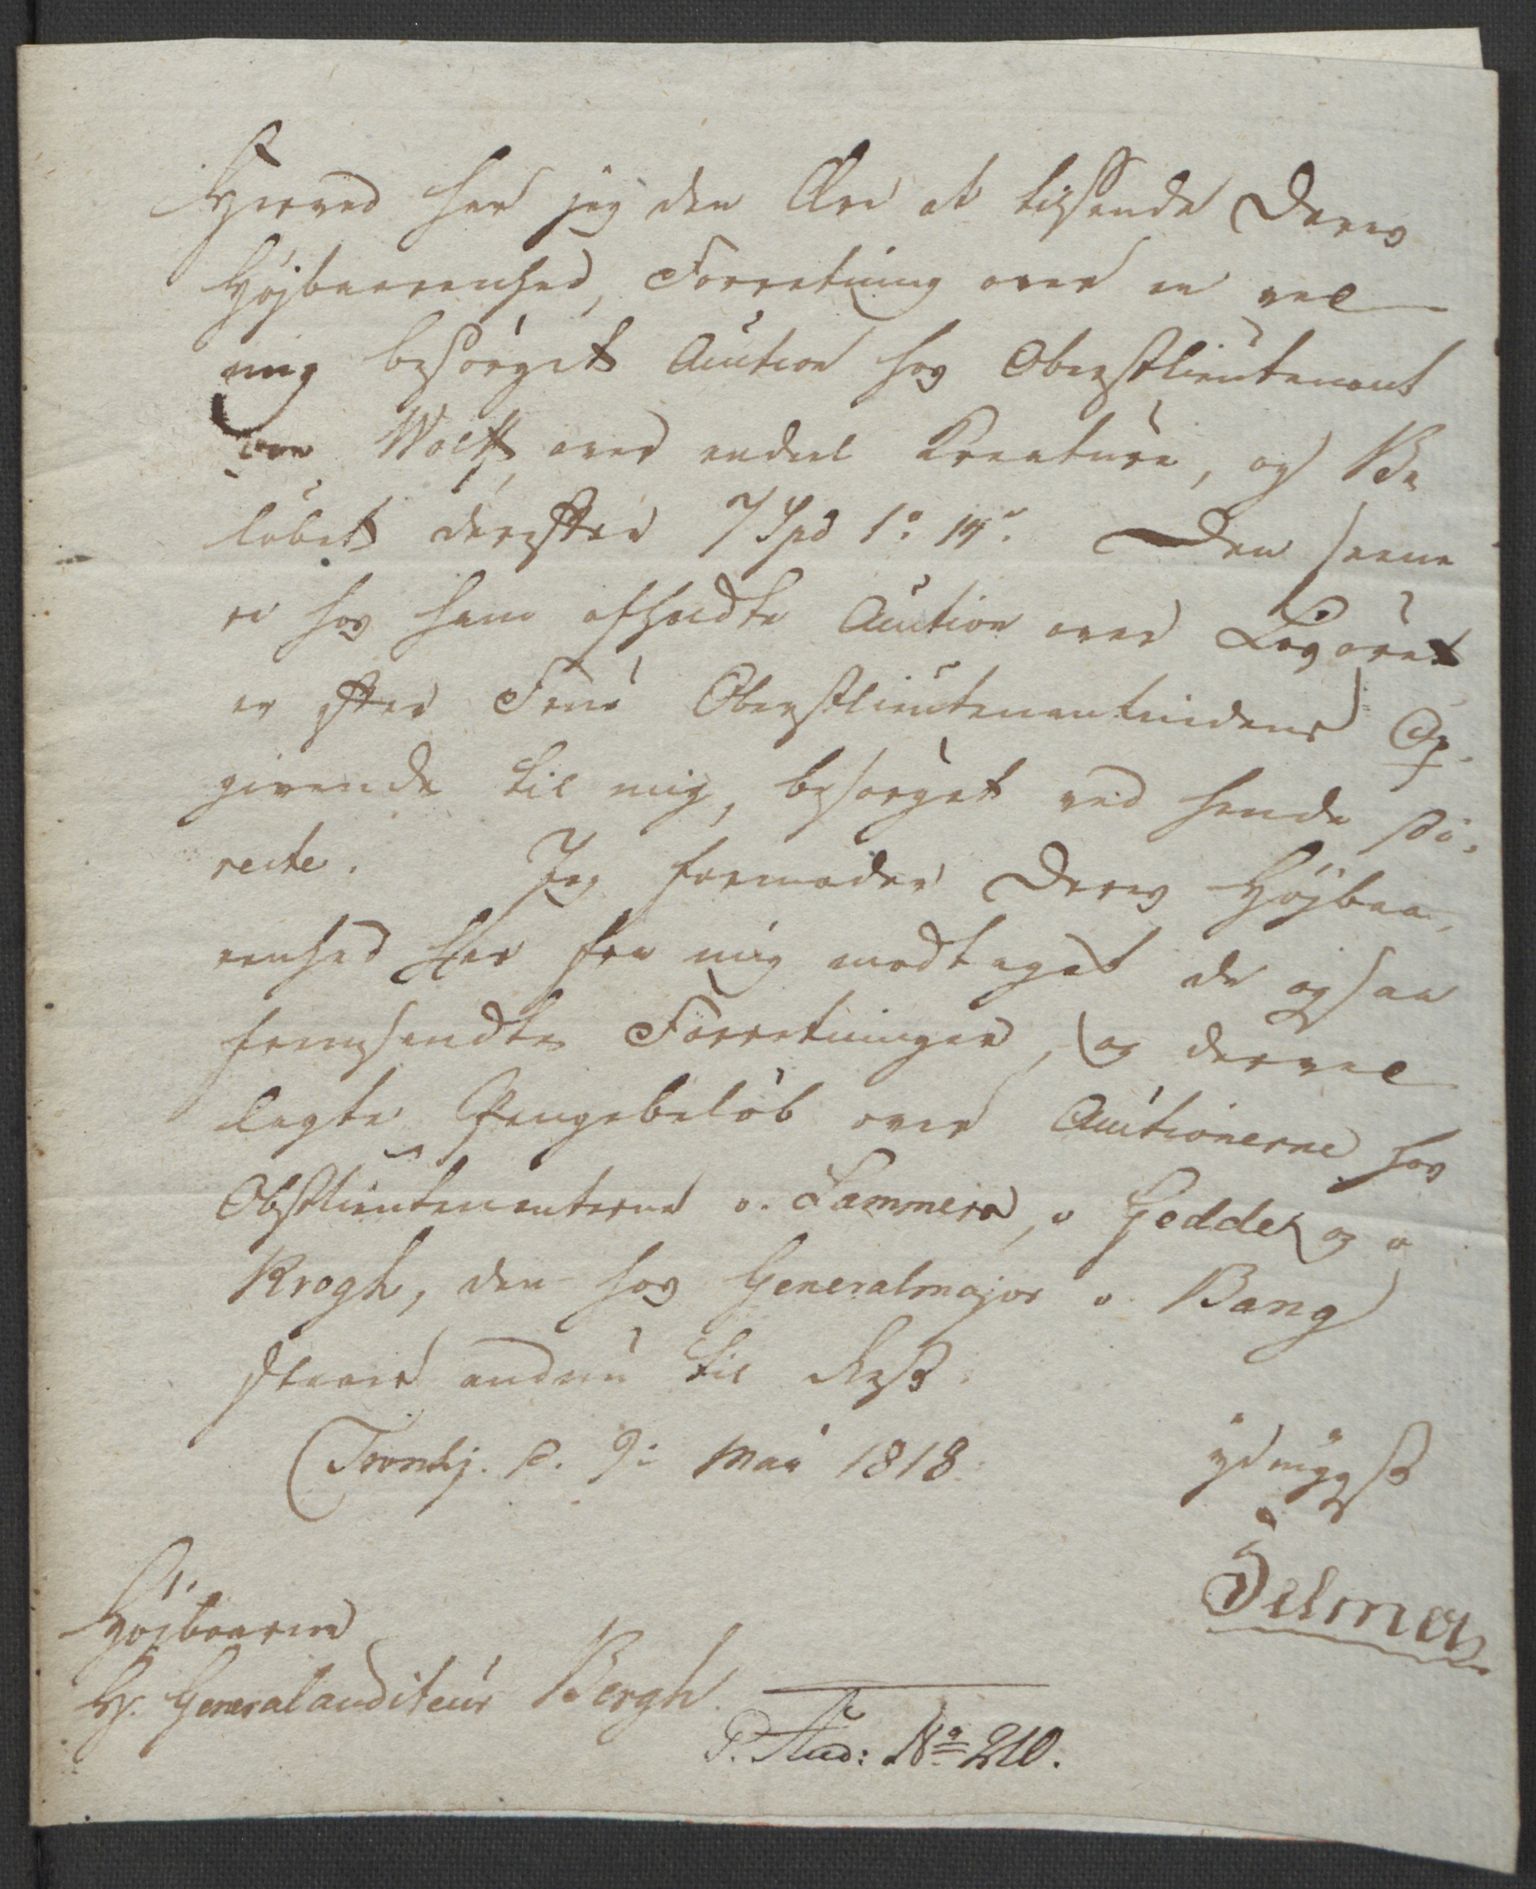 Herved har jeg den Ære at tilsende Deres
Höjbaarenhed, Forretning over en ved
mig besörget Auction hos Oberstlieutenant
von Wolff over endeel Kreature, og Be
löbet derefter 7 Spd 1 o: 14 s. Den senne
re hos ham afholdte Auction over Lösöret
er efter Frue Oberstlieutenantindens Op
givende til mig, besörget ved hende di,
recte. Jeg formoder Deres Höjbaa,
renhed har fra mig modtaget de ogsaa
fremsendte Forretninger, og derved
lagte Pengebelöb over Auctionerne hos
Obstlieutenanterne v. Lammers, v Gedde, og v
Krogh, den hos Generalmajor v. Bang
staaer endnu til Rest.
Trondhj. d. 9i Mai 1818.
ydmygst
Höjbaarne
Hr. Generalauditeur Bergh.
P. Aud: No 210.